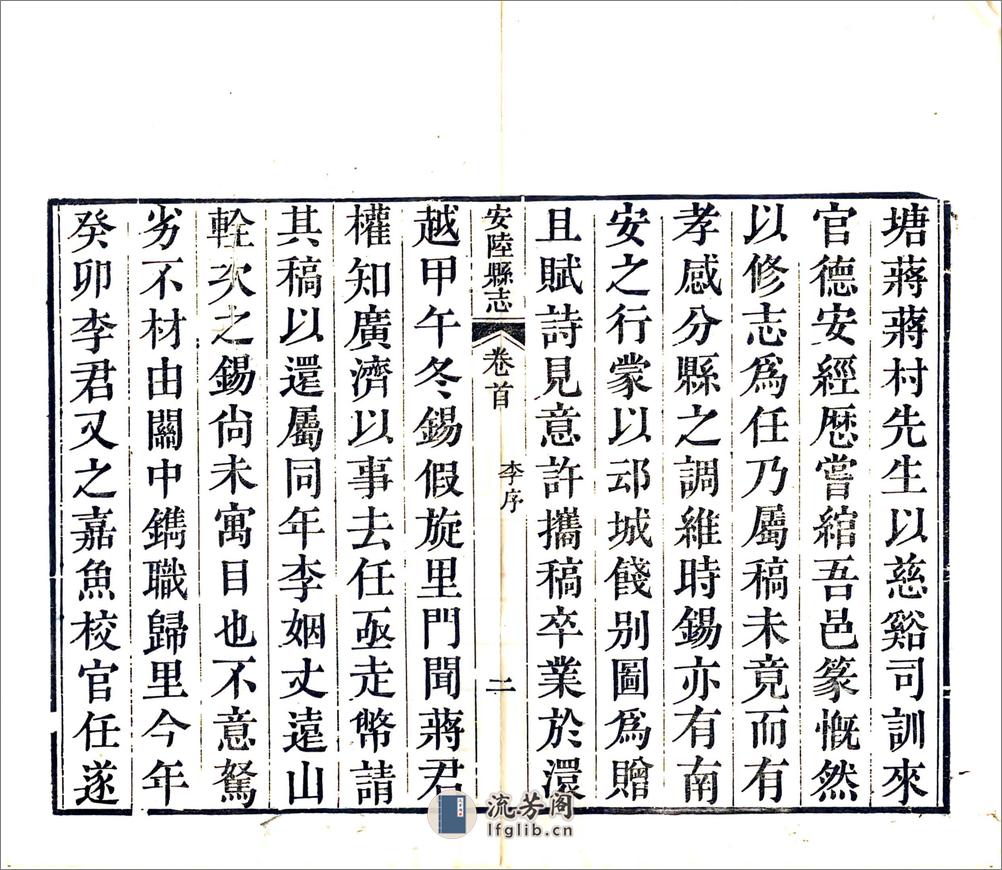 塘蔣蔣村先生以慈谿司訓來
官德安經厯嘗綰吾邑篆慨然
以修志爲任乃屬稿未竟而有
孝感分縣之調維時錫亦有南
安之行蒙以䢵城餞别圖爲贈
且賦詩見意許攜稿卒業於澴
安陸縣志
卷首
李序
二
越甲午冬錫假旋里門聞蔣君
權知廣濟以事去任亟走幣請
其稿以還屬同年李姻丈遠山
輇次之錫尙未寓目也不意駑
劣不材由關中鐫職歸里今年
癸卯李君又之嘉魚校官任遂
流芳阁
lfglib.cn